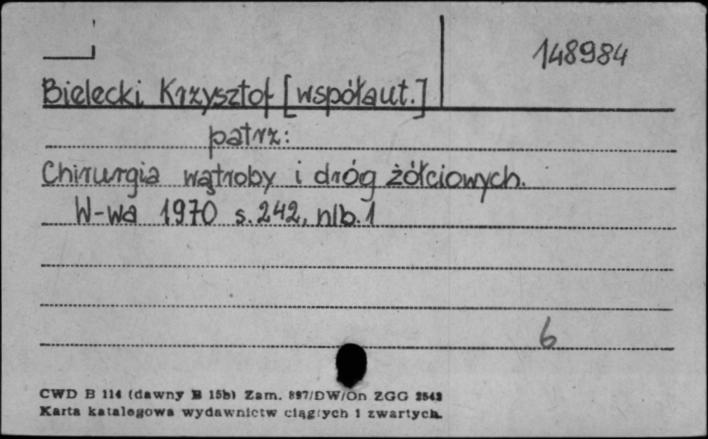 148984
Bielecki Krzysztof [współaut.]
patrz:
Chirurgia wątroby i dróg żółciowych.
W-wa 1970 s. 242, nlb. 1
6
CWD B 114 (dawny B 15b) Zam. 897/DW/On ZGG 2542
Karta katalogowa wydawnictw ciągłych i zwartych.